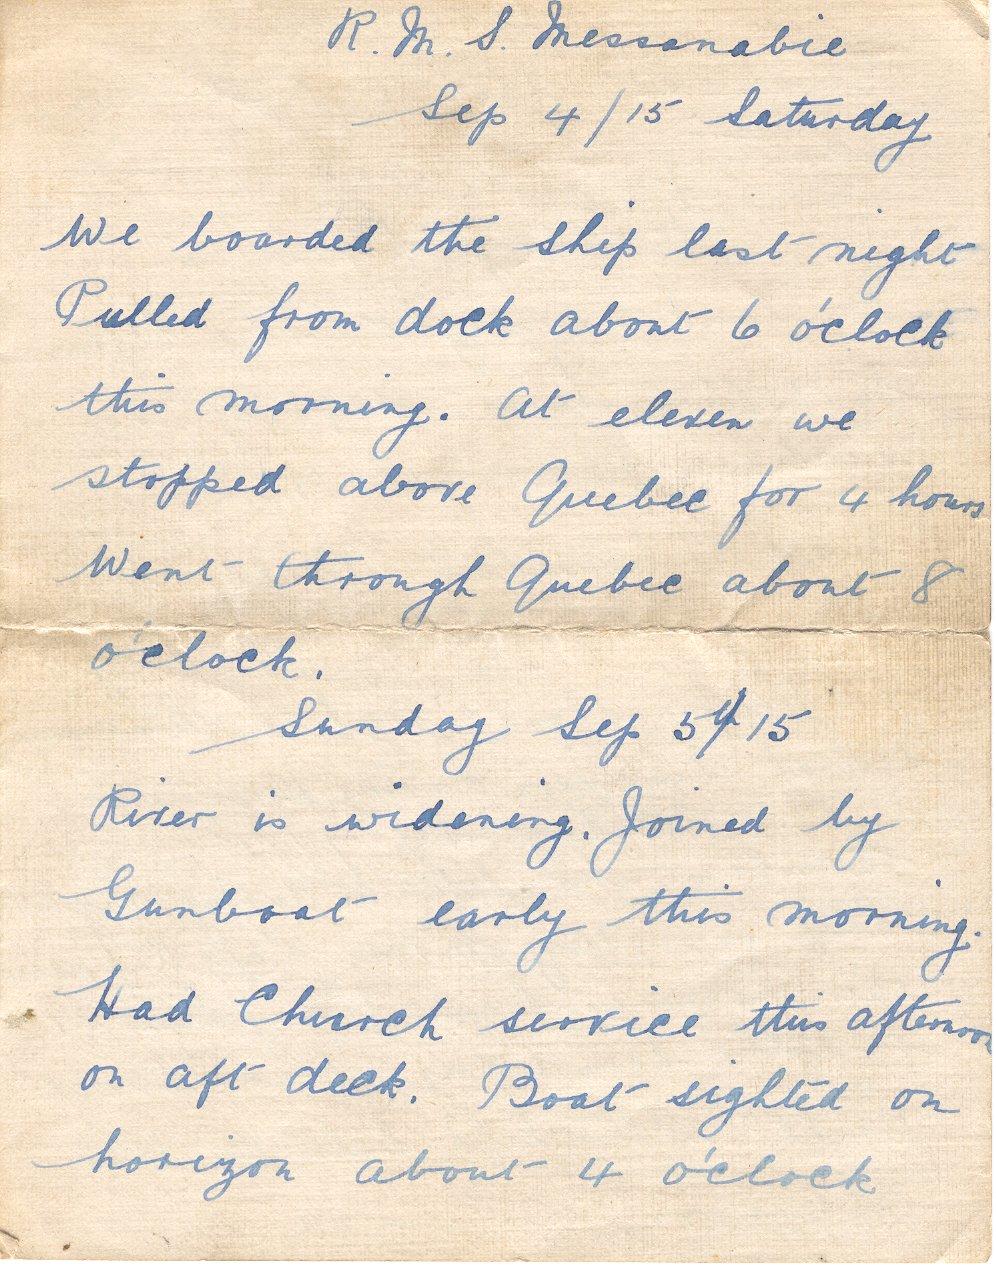 R. M. S. Messanabie
Sep 4/15 Saturday
We boarded the ship last night
Pulled from dock about 6 o'clock
this morning. At eleven we
stopped above Quebec for 4 hours
Went through Quebec about 8
o'clock.
Sunday Sep 5th/15
River is widening. Joined by
Gunboat early this morning.
Had Church service this afternoon
on aft deck. Boat sighted on
horizon about 4 o'clock